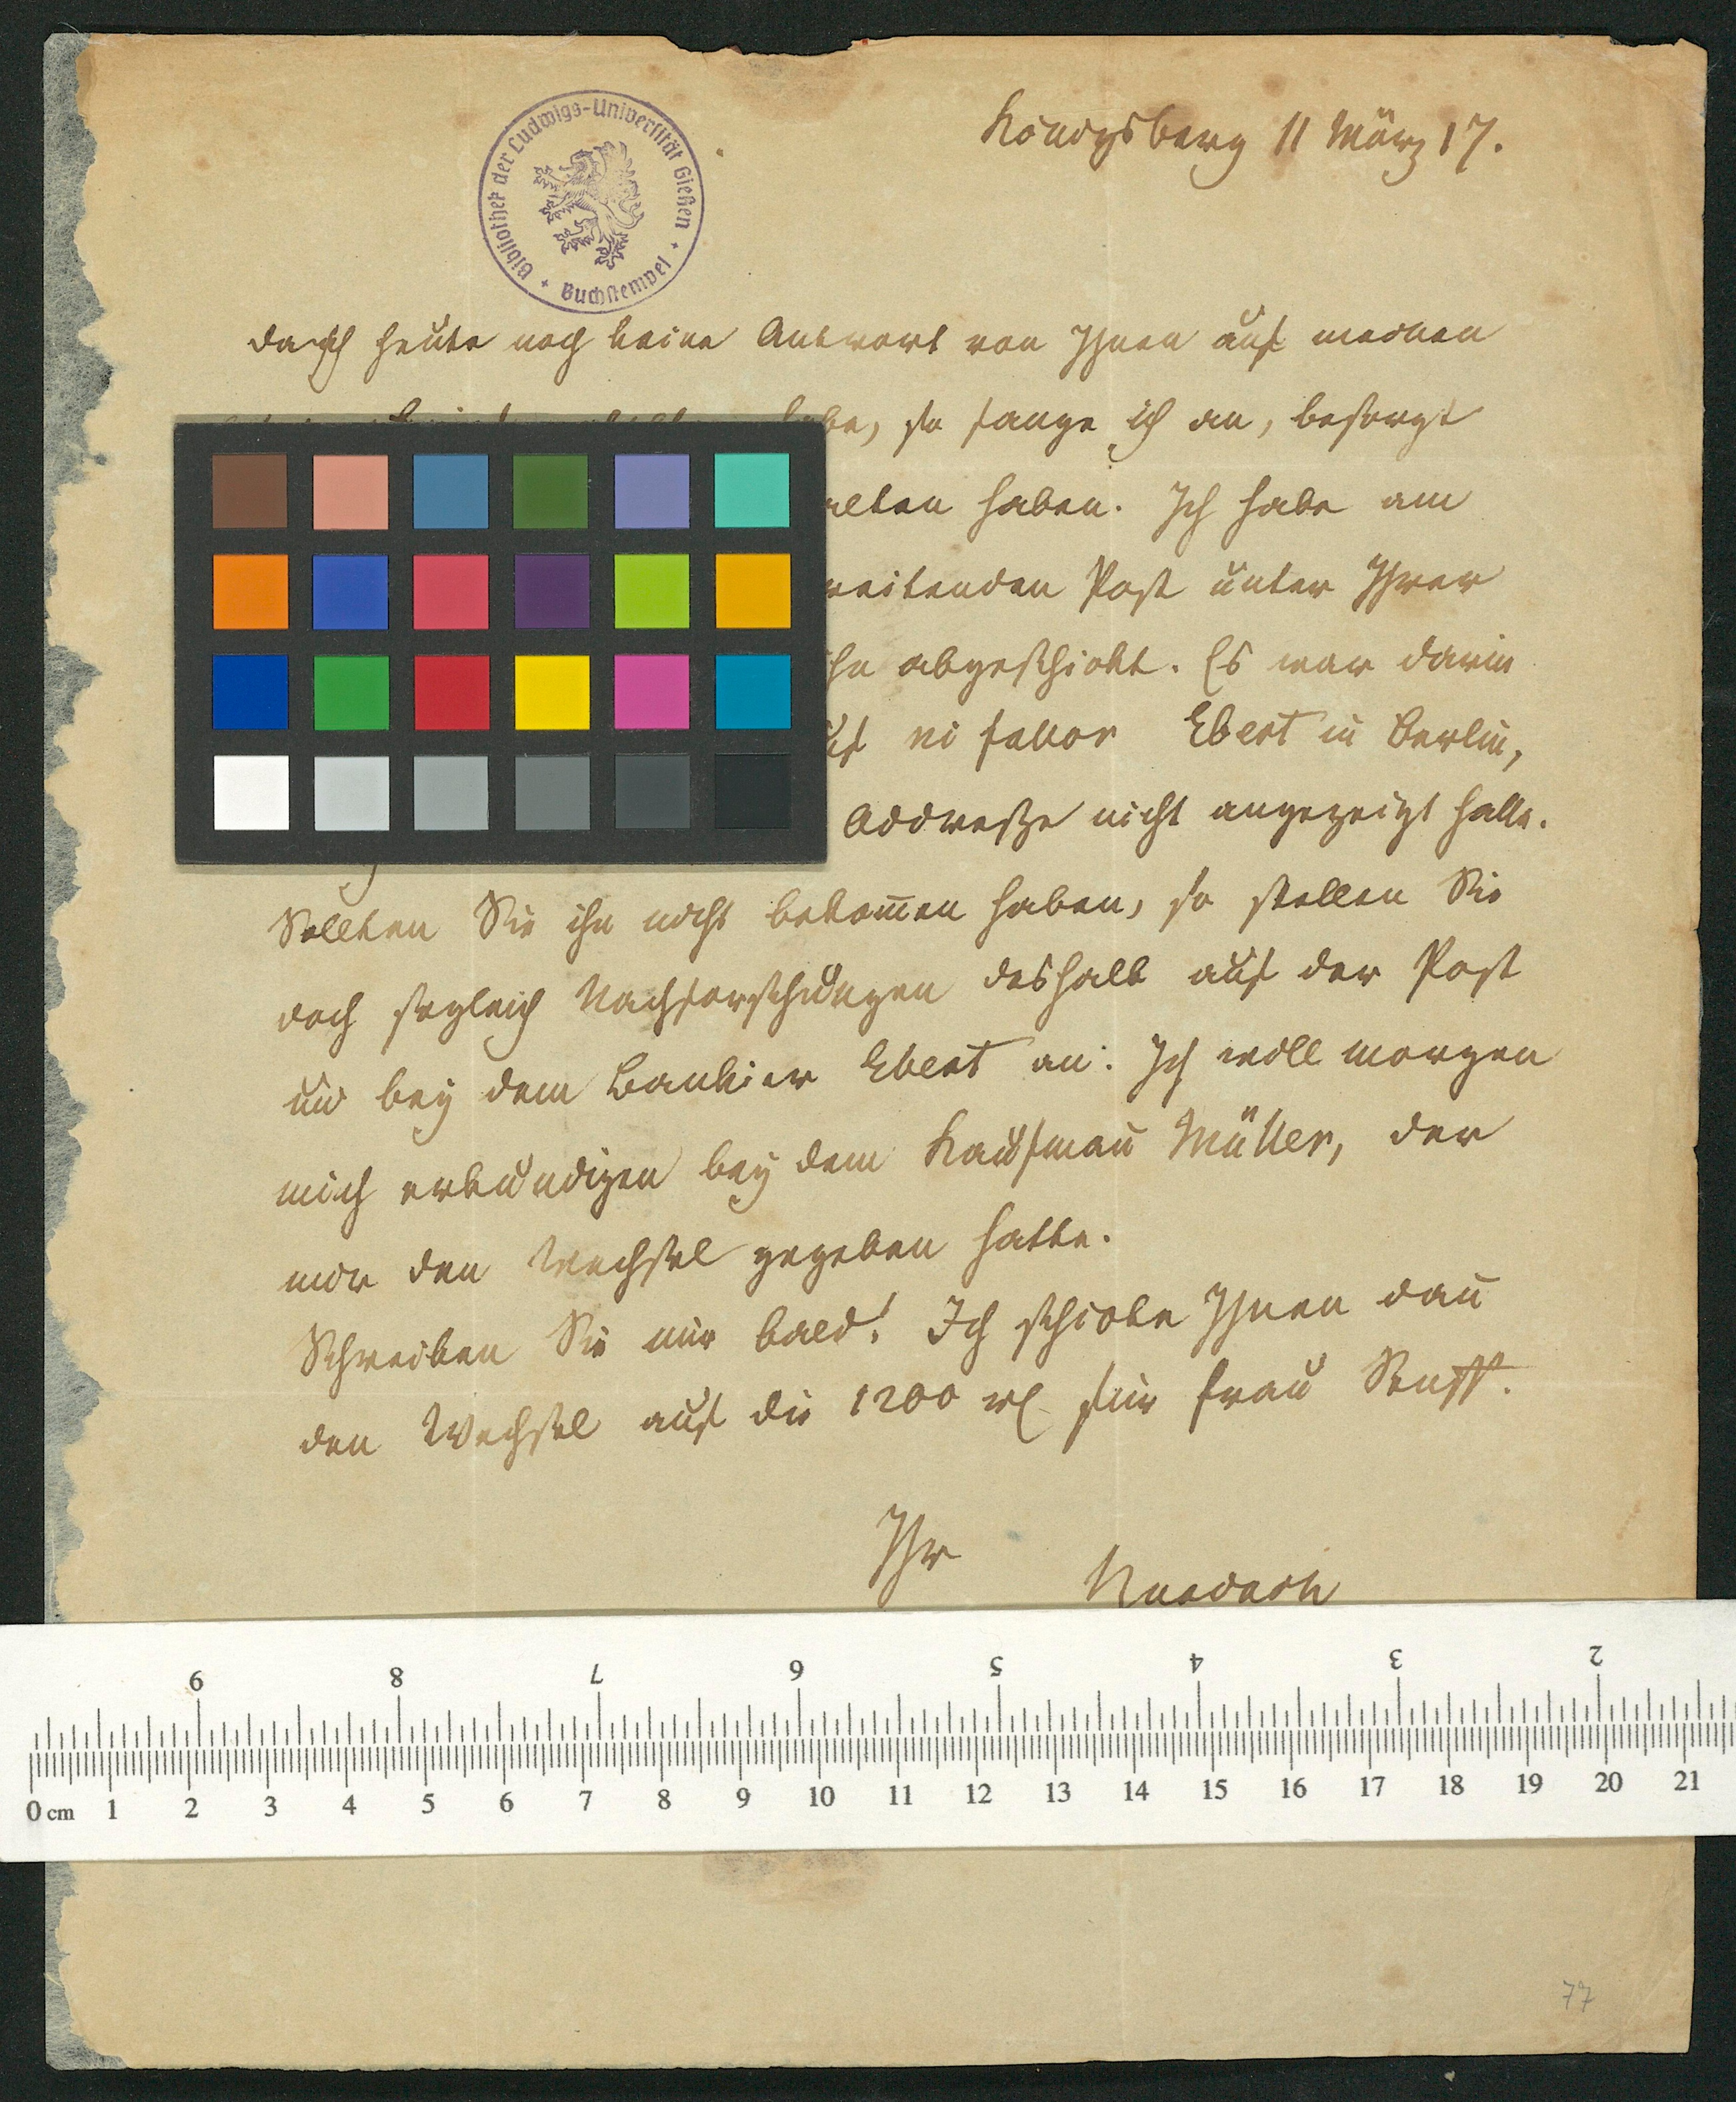 Bibliothek der Ludwigs-Universität Gießen
Buchstempel
Königsberg 11 März 17.
Da ich heute noch keine Antwort von Ihnen auf meinen
habe, so fange ich an, besorgt
haben. Ich habe am
reitenden Post unter Ihrer
abgeschickt. Es war darin
ni fallor Ebert in Berlin,
Addresse nicht angezeigt hatte.
Sollten Sie ihn nicht bekom̄en haben, so stellen Sie
doch sogleich Nachforschungen deshalb auf der Post
und bey dem Bankier Ebert an. Ich will morgen
mich erkundigen bey dem Kaufman̄ Müller, der
mir den Wechsel gegeben hatte.
Schreiben Sie mir bald! Ich schicke Ihnen dan̄
den Wechsel auf die 1200 rl für Frau
Ihr
9 8 7 6 5 4 3 2
0 cm 1 2 3 4 5 6 7 8 9 10 11 12 13 14 15 16 17 18 19 20 21
77